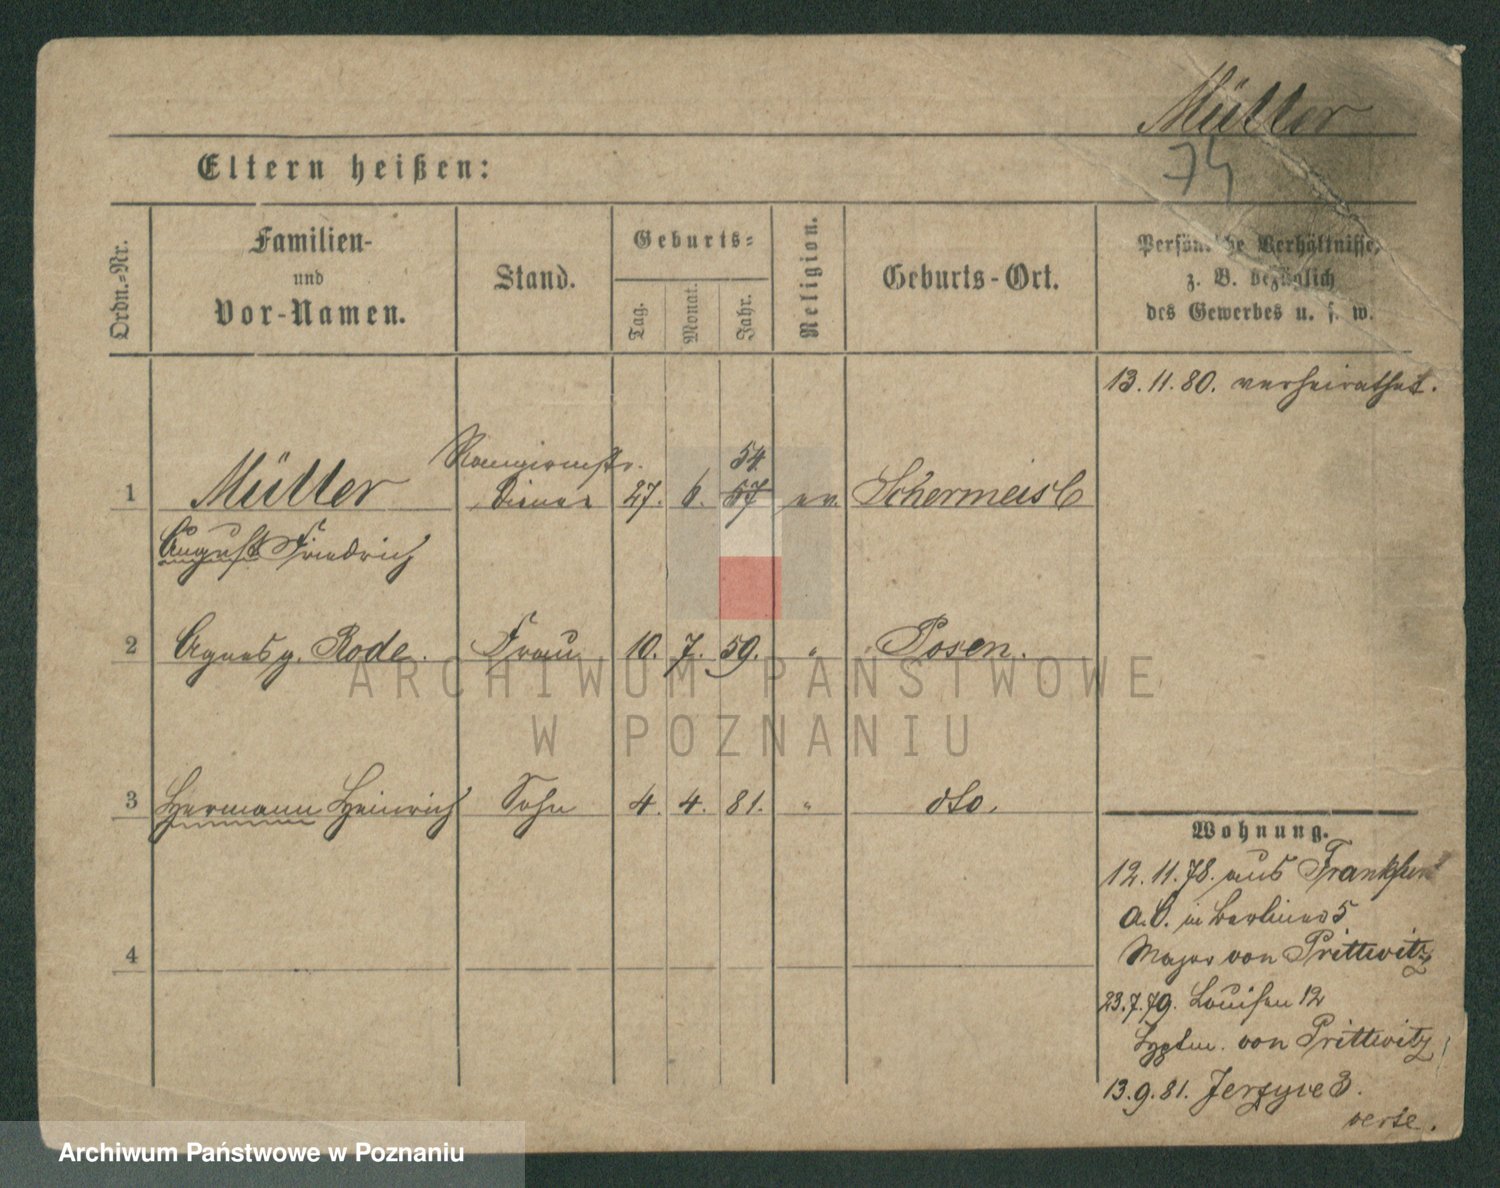 Müller
74
Eltern heißen:
Ordn.-Nr.
Familien-
und
Vor-Namen.
Stand.
Geburts-
Tag.
Monat.
Jahr.
Religion.
Geburts-Ort.
Persönliche Verhältnisse,
z. B. bezüglich
des Gewerbes u. s. w.
13. 11. 80. verheirathet.
54.
1 Müller Diener 27. 6. 57 ev. Schermeisl
August Friedrich
2 Agnes g. Rode. Frau 10. 7. 59. " Posen.
3 Hermann Heinrich Sohn 4. 4. 81. " dto.
4
Wohnung.
12. 11. 78. aus Frankfurt
a. O. in Berliner 5
Major von Prittwitz
23. 7. 79. Louisen 12
Hyptm. von Prittwitz
13. 9. 81. Jerzyce 3.
verte.
ARCHIWUM PAŃSTWOWE
W POZNANIU
Archiwum Państwowe w Poznaniu